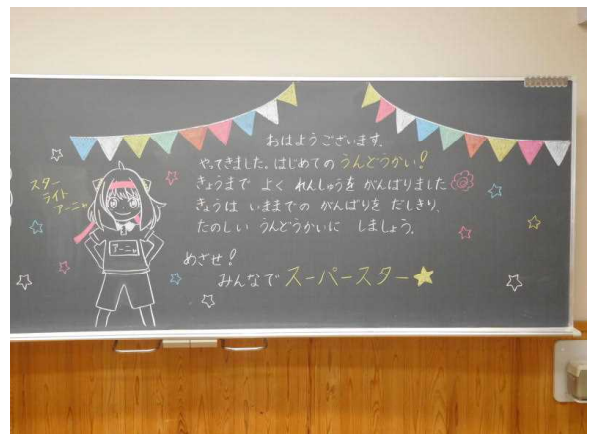 おはようございます。
やってきました。はじめての うんどうかい!
きょうまで よく れんしゅうを がんばりました
きょうは いままでの がんばりを だしきり、
たのしい うんどうかいに しましょう。
めざせ!
みんなで スーパースター
スター
ライト
アーニャ
アーニャ